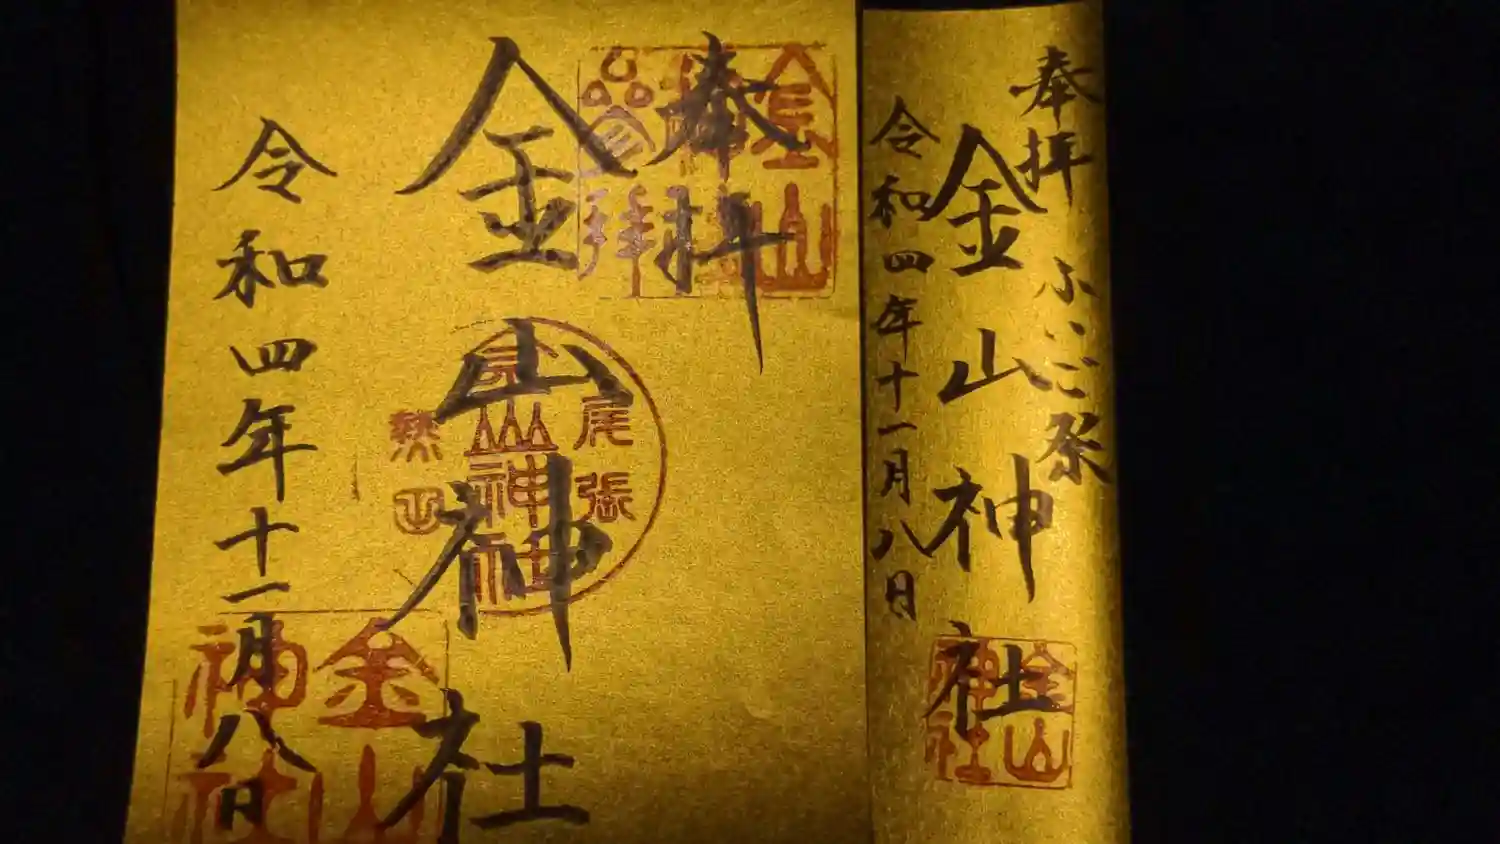 奉拝
ふいご祭
金山神社
令和四年十一月八日
金山
神社
奉拝
金山神社
令和四年十一月八日
尾張
金山神社
熱田
金山
神社